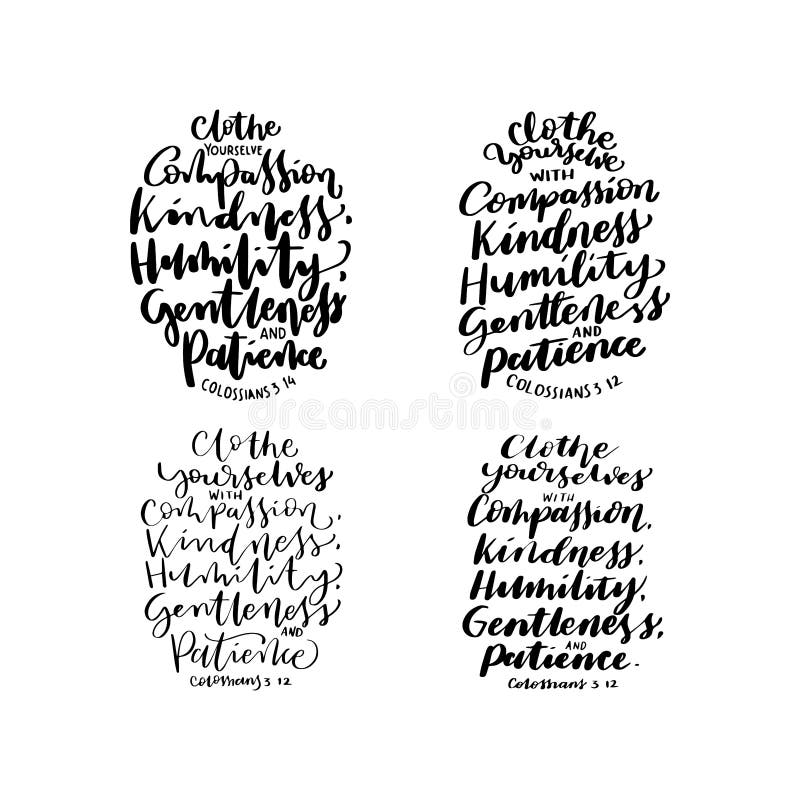 Clothe
YOURSELVE
Compassion
Kindness,
Humility,
Gentleness
AND
Patience
COLOSSIANS 3 14
Clothe
yourselve
WITH
Compassion
Kindness
Humility
Gentleness
AND
Patience
COLOSSIANS 3 12
dreamstime.com
Clothe
yourselves
WITH
Compassion,
Kindness,
Humility,
Gentleness
AND
Patience
Colossians 3 12
Clothe
yourselves
WITH
Compassion,
Kindness,
Humility,
Gentleness,
AND
Patience.
Colossians 3 12